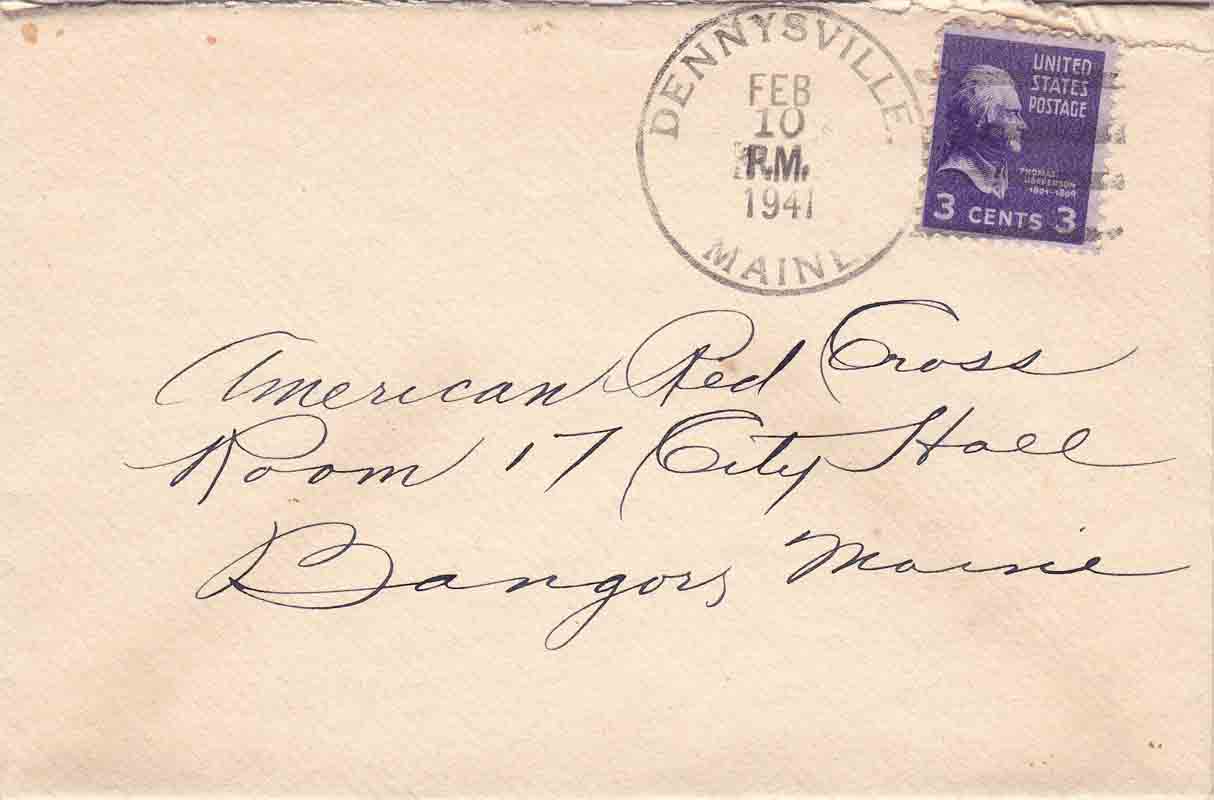 DENNYSVILLE.
FEB
10
P.M.
1941
MAINE
UNITED
STATES
POSTAGE
THOMAS
JEFFERSON
1801-1809
3 CENTS 3
American Red Cross
Room 17 City Hall
Bangor, Maine